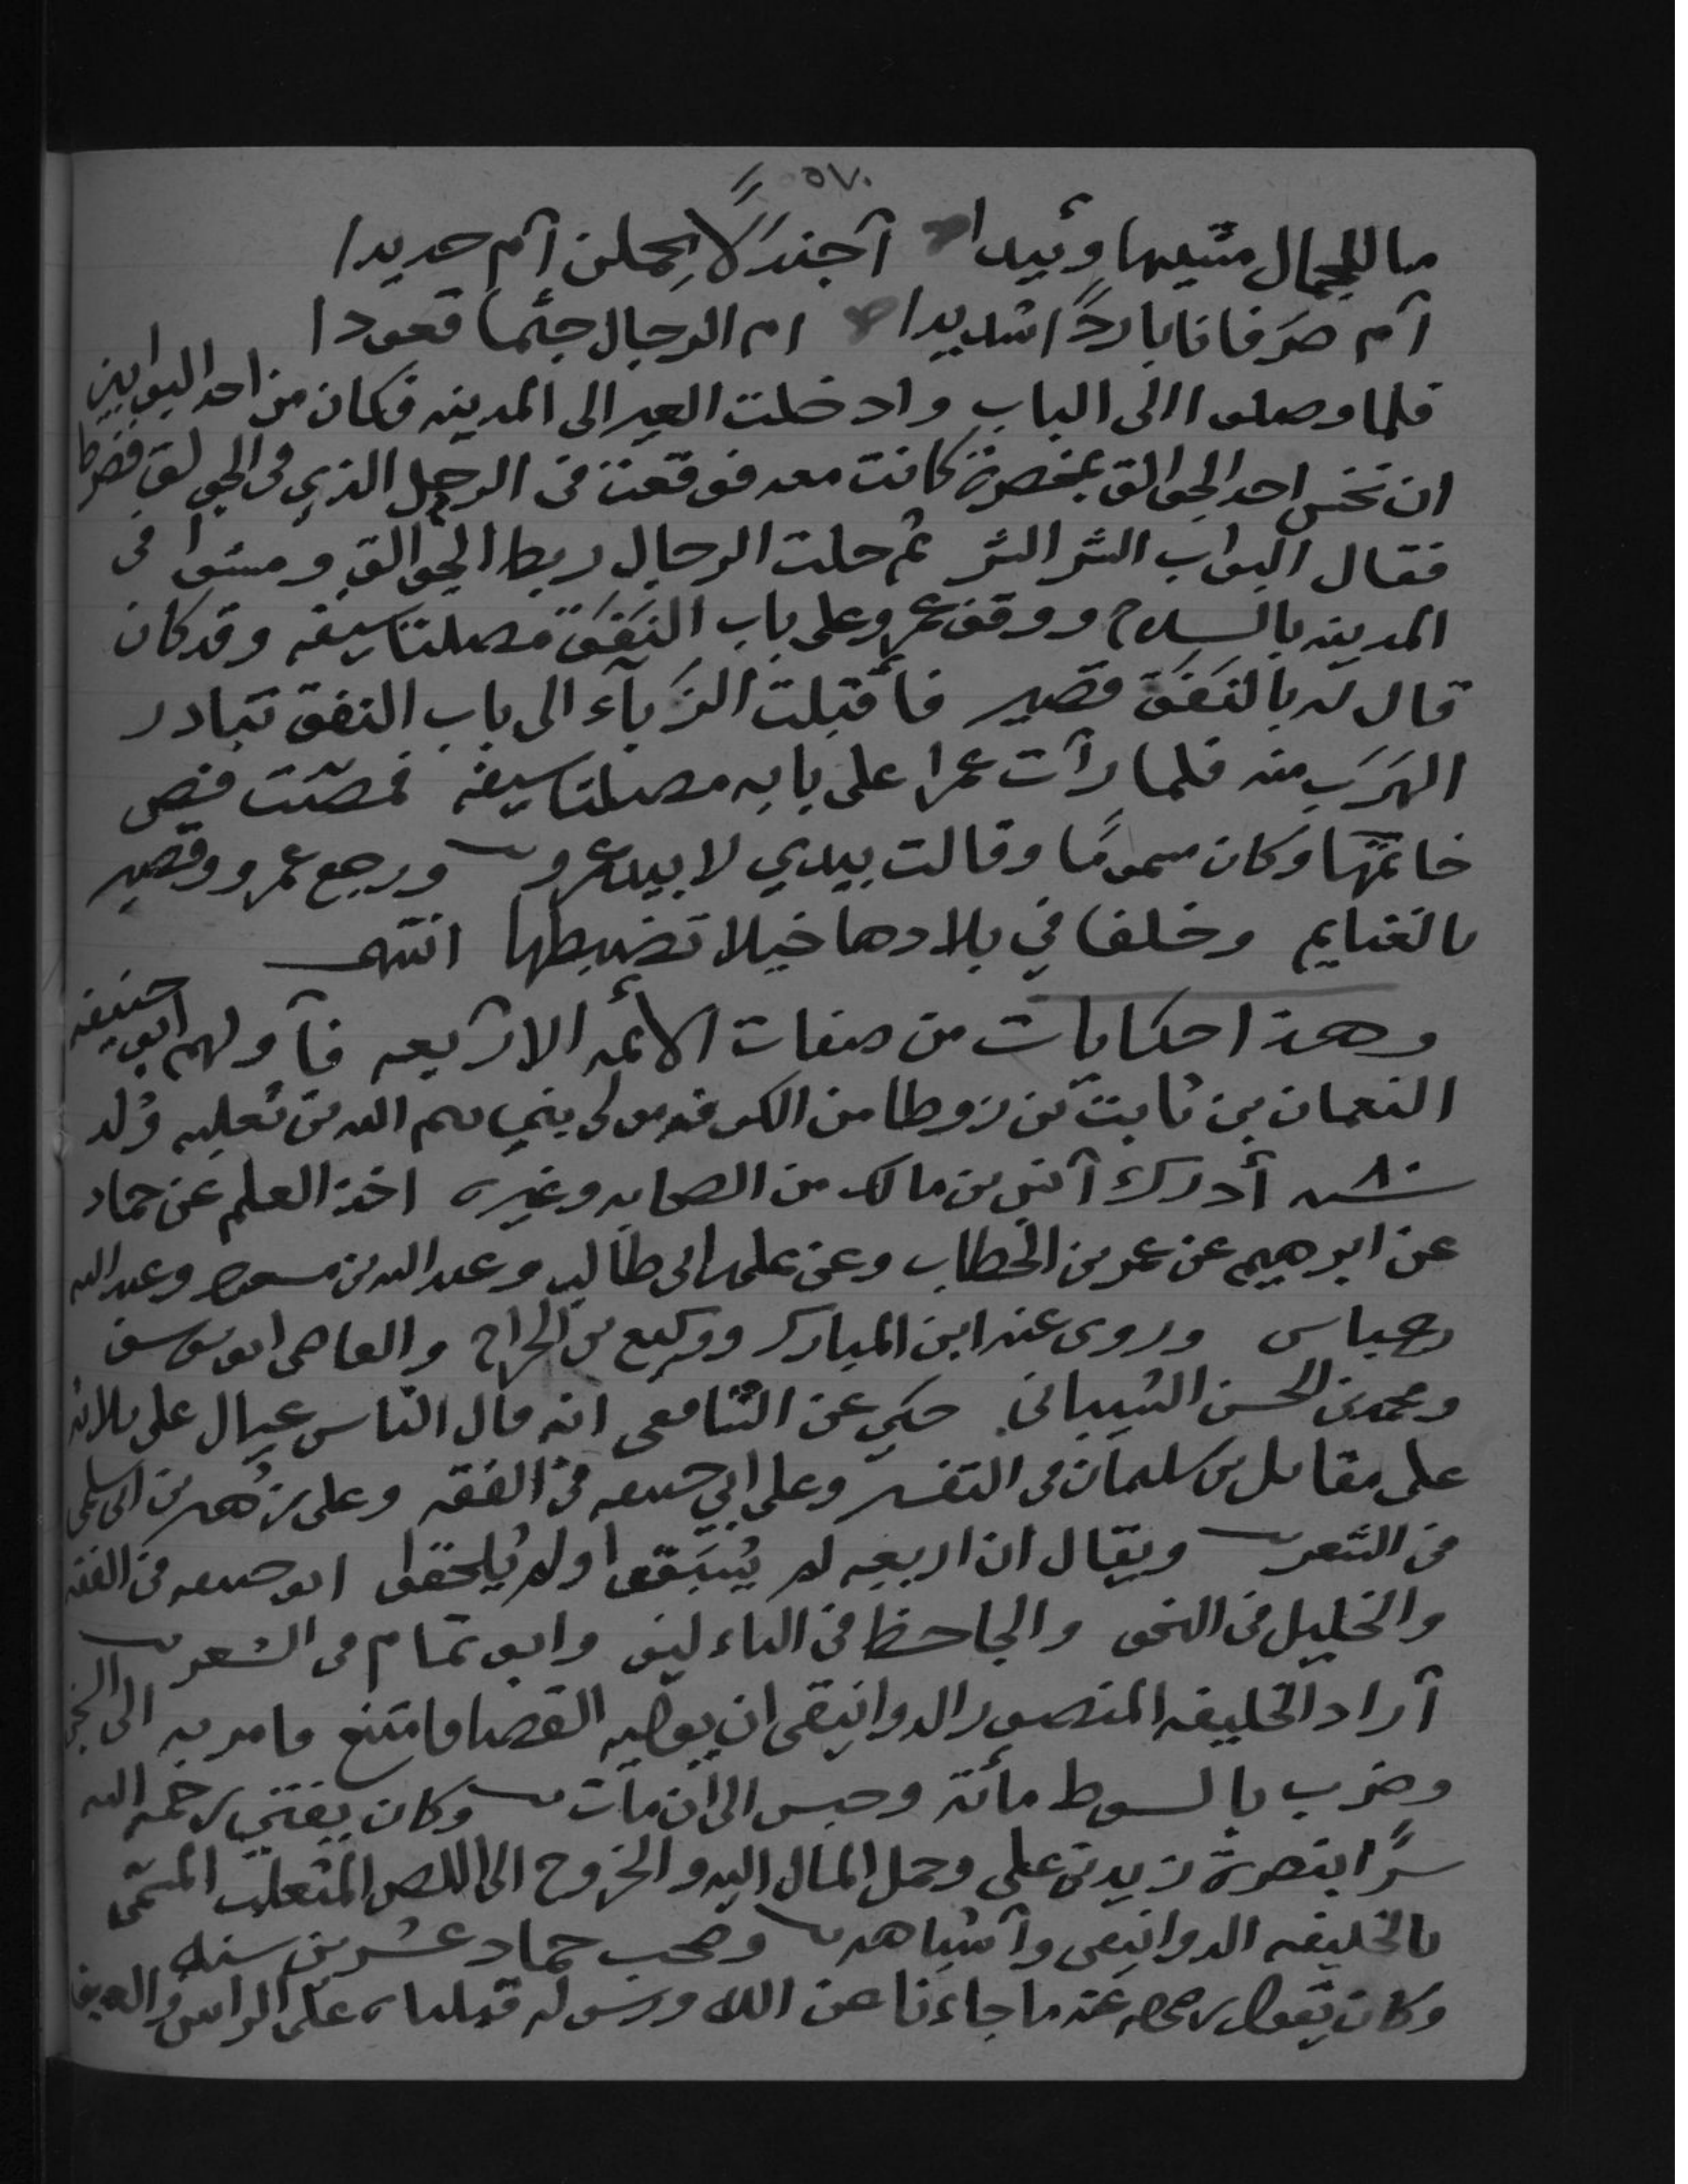 ٥٧٠
ما للجمال مشيها وئيدا آجندلًا يحملن آم حديدا
آم صرفانا باردًا شديدا ام الرجال جثما قعودا
فلما وصلوا الى الباب وادخلت العير الى المدينه فكان من احد البوابين
ان نخس احد الجوالق بمخصرة كانت معه فوقعت في الرجل الذي في الجوالق فضرط
فقال البواب الشر الشر ثم حلت الرجال ربط الجوالق ومشوا في
المدينه بالسلاح ووقف عمرو على باب النفق مصلتا سيفه وقد كان
قال له بالنفق قصير فأقبلت الزباء الى باب النفق تبادر
الهرب منه فلما رآت عمرا على بابه مصلتا سيفه فمصّت فص
خاتمها وكان مسمومًا وقالت بيدي لا بيد عمرو ورجع عمرو وقصير
بالغنايم وخلفا في بلادها خيلا تضبطها انتهى
وهذا حكايات من صفات الأئمه الاربعه فآولهم ابو حنيفه
النعمان بن ثابت بن زوطا من الكوفه مولى بني تيم الله بن ثعلبه ولد
سنة ٨٠ أدرك آنس بن مالك من الصحابه وغيره اخذ العلم عن حماد
عن ابرهيم عن عمر بن الخطاب وعن علي بن ابي طالب وعبد الله بن مسعود وعبد الله
بن عباس وروى عنه ابن المبارك ووكيع بن الجراح والقاضي ابو يوسف
ومحمد بن الحسن الشيباني حكي عن الشافعي انه قال الناس عيال على ثلاثه
على مقاتل بن سليمان في التفسير وعلى ابي حنيفه في الفقه وعلى زهير بن ابي سلمى
في الشعر ويقال ان اربعه لم يُسبَقوا ولم يُلحقوا ابو حنيفه في الفقه
والخليل في النحو والجاحظ في التاءليف وابو تمام في الشعر
آراد الخليفه المنصور الدوانيقي ان يوليه القضا فامتنع فامر به الى
وضرب بالسوط مائة وحبس الى ان مات وكان يفتي رحمه الله
سرًّا بنصرة زيد بن علي وحمل المال اليه والخروج الى اللص المتغلب المسمّى
بالخليفه الدوانيقي وآشباهه وصحب حماد عشرين سنه
وكان يقول رحمه عنه ما جاءنا عن الله ورسوله قبلناه على الراس والعين